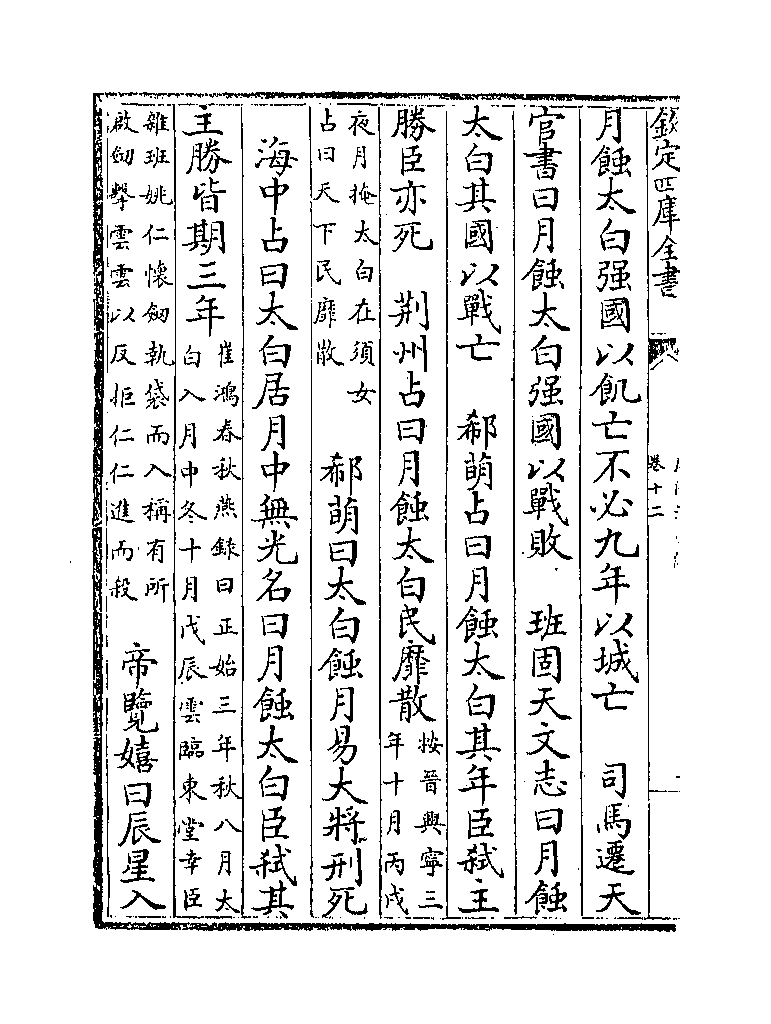 欽定四庫全書
卷十二
月蝕太白强國以飢亡不必九年以城亡　司馬遷天
官書曰月蝕太白强國以戰敗　班固天文志曰月蝕
太白其國以戰亡　郗萌占曰月蝕太白其年臣弑主
勝臣亦死　荆州占曰月蝕太白民靡散按晉興寧三
年十月丙戌
夜月掩太白在須女
占曰天下民靡散　郗萌曰太白蝕月易大將刑死
海中占曰太白居月中無光名曰月蝕太白臣弑其
主勝皆期三年崔鴻春秋燕錄曰正始三年秋八月太
白入月中冬十月戊辰雲臨東堂幸臣
離班姚仁懷劒執袋而入稱有所
啟劒擊雲雲以反拒仁仁進而殺　帝覽嬉曰辰星入